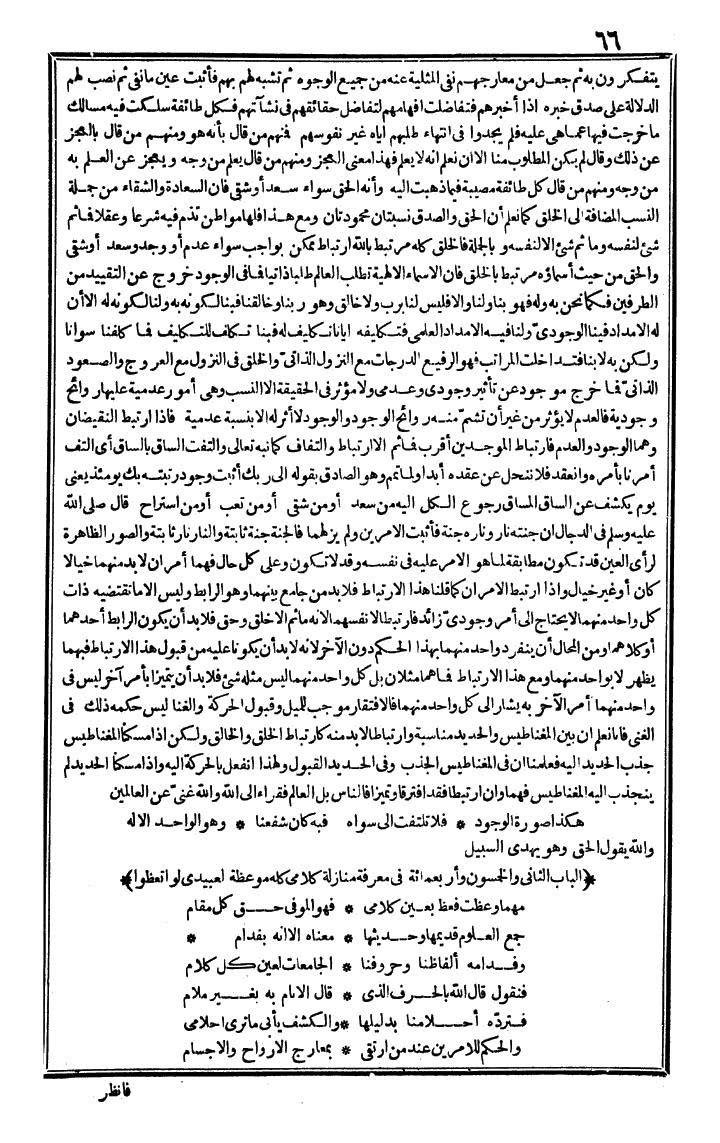 ٦٦
يتفكرون به ثم جعل من معارجهم نفي المثلية عنه من جميع الوجوه ثم تشبه لهم بهم فأثبت عين ما نفي ثم نصب لهم
الدلالة على صدق خبره اذا أخبرهم فتفاضلت افهامهم لتفاضل حقائقهم في نشآتهم فكل طائفة سلكت فيه مسالك
ما خرجت فيها عما هي عليه فلم يجدوا في انتهاء طلبهم اياه غير نفوسهم فمنهم من قال بأنه هو ومنهم من قال بالعجز
عن ذلك وقال لم يكن المطلوب منا الا ان نعلم انه لا يعلم فهذا معنى العجز ومنهم من قال يعلم من وجه ويعجز عن العلم به
من وجه ومنهم من قال كل طائفة مصيبة فيما ذهبت اليه وأنه الحق سواء سعد أو شقي فان السعادة والشقاء من جملة
النسب المضافة الى الخلق كما نعلم أن الحق والصدق نسبتان محمودتان ومع هذا فلها مواطن تذم فيه شرعا وعقلا فما ثم
شئ لنفسه وما ثم شئ الا لنفسه وبالجملة فالخلق كله مرتبط بالله ارتباط ممكن بواجب سواء عدم أو وجد وسعد أو شقي
والحق من حيث أسماؤه مرتبط بالخلق فان الاسماء الالهية تطلب العالم طلبا ذاتيا فما في الوجود خروج عن التقييد من
الطرفين فكما نحن به وله فهو بنا ولنا والا فليس لنا برب ولا خالق وهو ربنا وخالقنا فبنا لكونه به ولنا لكونه له الا أن
له الامداد فينا الوجودي ولنا فيه الامداد العلمي فتكليفه ايانا تكليف له فبنا تكلف للتكليف فما كلفنا سوانا
ولكن به لا بنا فتداخلت المراتب فهو الرفيع الدرجات مع النزول الذاتي والخلق في النزول مع العروج والصعود
الذاتي فما خرج موجود عن تأثير وجودي وعدمي ولا مؤثر في الحقيقة الا النسب وهي أمور عدمية عليها روائح
وجودية فالعدم لا يؤثر من غير أن تشم منه روائح الوجود والوجود لا أثر له الا بنسبة عدمية فاذا ارتبط النقيضان
وهما الوجود والعدم فارتباط الموجدين أقرب فما ثم الا ارتباط والتفاف كما نبه تعالى والتفت الساق بالساق أي التف
أمرنا بأمره وانعقد فلا ننحل عن عقده أبدا ولما تم وهو الصادق بقوله الى ربك أثبت وجود رتبته بك يومئذ يعني
يوم يكشف عن الساق المساق رجوع الكل اليه من سعد أو من شقي أو من تعب أو من استراح قال صلى الله
عليه وسلم في الدجال ان جنته نار وناره جنة فأثبت الامرين ولم يزلهما فالجنة جنة ثابتة والنار نار ثابتة والصور الظاهرة
لرأى العين قد تكون مطابقة لما هو الامر عليه في نفسه وقد لا تكون وعلى كل حال فهما أمران لا بد منهما خيالا
كان أو غير خيال واذا ارتبط الامران كما قلنا هذا الارتباط فلا بد من جامع بينهما وهو الرابط وليس الا ما تقتضيه ذات
كل واحد منهما لا يحتاج الى أمر وجودي زائد فارتبطا لانفسهما لانه ما ثم الا خلق وحق فلا بد أن يكون الرابط أحدهما
أو كلاهما ومن المحال أن ينفرد واحد منهما بهذا الحكم دون الآخر لانه لا بد أن يكونا عليه من قبول هذا الارتباط فبهما
يظهر لا بواحد منهما ومع هذا الارتباط فما هما مثلان بل كل واحد منهما ليس مثله شئ فلا بد أن يتميزا بأمر آخر ليس في
واحد منهما أمر الآخر به يشار الى كل واحد منهما فالافتقار موجب للميل وقبول الحركة والغنا ليس حكمه ذلك في
الغنى فانا نعلم ان بين المغناطيس والحديد مناسبة وارتباطا لا بد منه كارتباط الخلق والخالق ولكن اذا مسكنا المغناطيس
جذب الحديد اليه فعلمنا ان في المغناطيس الجذب وفي الحديد القبول ولهذا انفعل بالحركة اليه واذا مسكنا الحديد لم
ينجذب اليه المغناطيس فهما وان ارتبطا فقد افترقا وتميزا فالناس بل العالم فقراء الى الله والله غني عن العالمين
هكذا صورة الوجود * فلا تلتفت الى سواه فبه كان شفعنا * وهو الواحد الاله
والله يقول الحق وهو يهدي السبيل
﴿الباب الثاني والخمسون وأربعمائة في معرفة منازلة كلامي كله موعظة لعبيدي لو اتعظوا﴾
مهما وعظت فعظ بعين كلامي * فهو الموفي حق كل مقام
جمع العلوم قديمها وحديثها * معناه الا انه بفدام *
وفدامه ألفاظنا وحروفنا * الجامعات لعين كل كلام
فنقول قال الله بالحرف الذي * قال الانام به بغير ملام
فترده أحلامنا بدليلها * والكشف يأبى ما ترى احلامي
والحكم للامرين عند من ارتقى * بمعارج الارواح والاجسام
فانظر